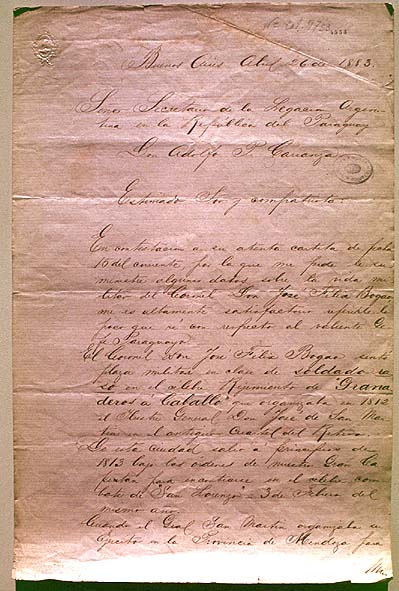 Buenos Aires Abril 26 de 1883.
Señor Secretario de la Legacion Argen-
tina en la Republica del Paraguay
Don Adolfo P. Carranza
Estimado Sor y compatriota:
En contestacion a su atenta cartita de fecha
15 del corriente por la que me pide le su
ministre algunos datos sobre la vida mi
litar del Coronel Don José Felix Bogado
me es altamente satisfactorio referirle lo
poco que se con respecto al valiente Ge
fe Paraguayo.
El Coronel Don José Felix Bogado sentó
plaza militar en clase de soldado ra
so en el celebre Regimiento de Grana
deros a Caballo que organizaba en 1812
el Ilustre General Don José de San Mar
tin en el antiguo Cuartel del Retiro.
De esta ciudad salio a principios de
1813 bajo las ordenes de nuestro Gran Ca
pitan para encontrarse en el celebre com
bate de San Lorenzo - 3 de Febrero del
mismo año.
Cuando el Gral San Martin organizaba su
Ejercito en la Provincia de Mendoza para